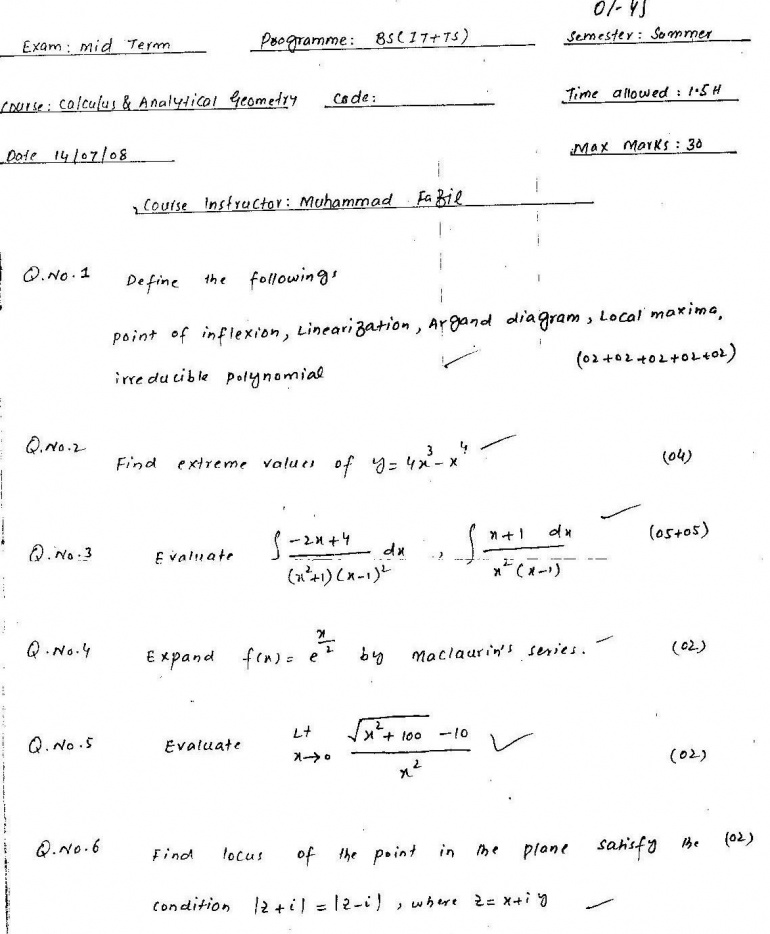 01-45
Exam: mid Term Programme: BS(IT+TS) Semester: Sommer
Course: Calculus & Analytical Geometry Code: Time allowed: 1.5H
Date 14/07/08 Max Marks: 30
Course Instructor: Muhammad Fazil
Q.No.1 Define the followings
Point of inflexion, Linearization, Argand diagram, Local maxima,
irreducible polynomial (02+02+02+02+02)
Q.No.2 Find extreme values of y=4x³-x⁴ (04)
Q.No.3 Evaluate ∫ (-2x+4)/((x²+1)(x-1)²) dx , ∫ (x+1 dx)/(x²(x-1)) (05+05)
Q.No.4 Expand f(x)= e^(x/2) by Maclaurin's series. (02)
Q.No.5 Evaluate Lt x→0 (√(x²+100) -10)/x² (02)
Q.No.6 Find locus of the point in the plane satisfy the (02)
condition |z+i|=|z-i|, where z=x+iy